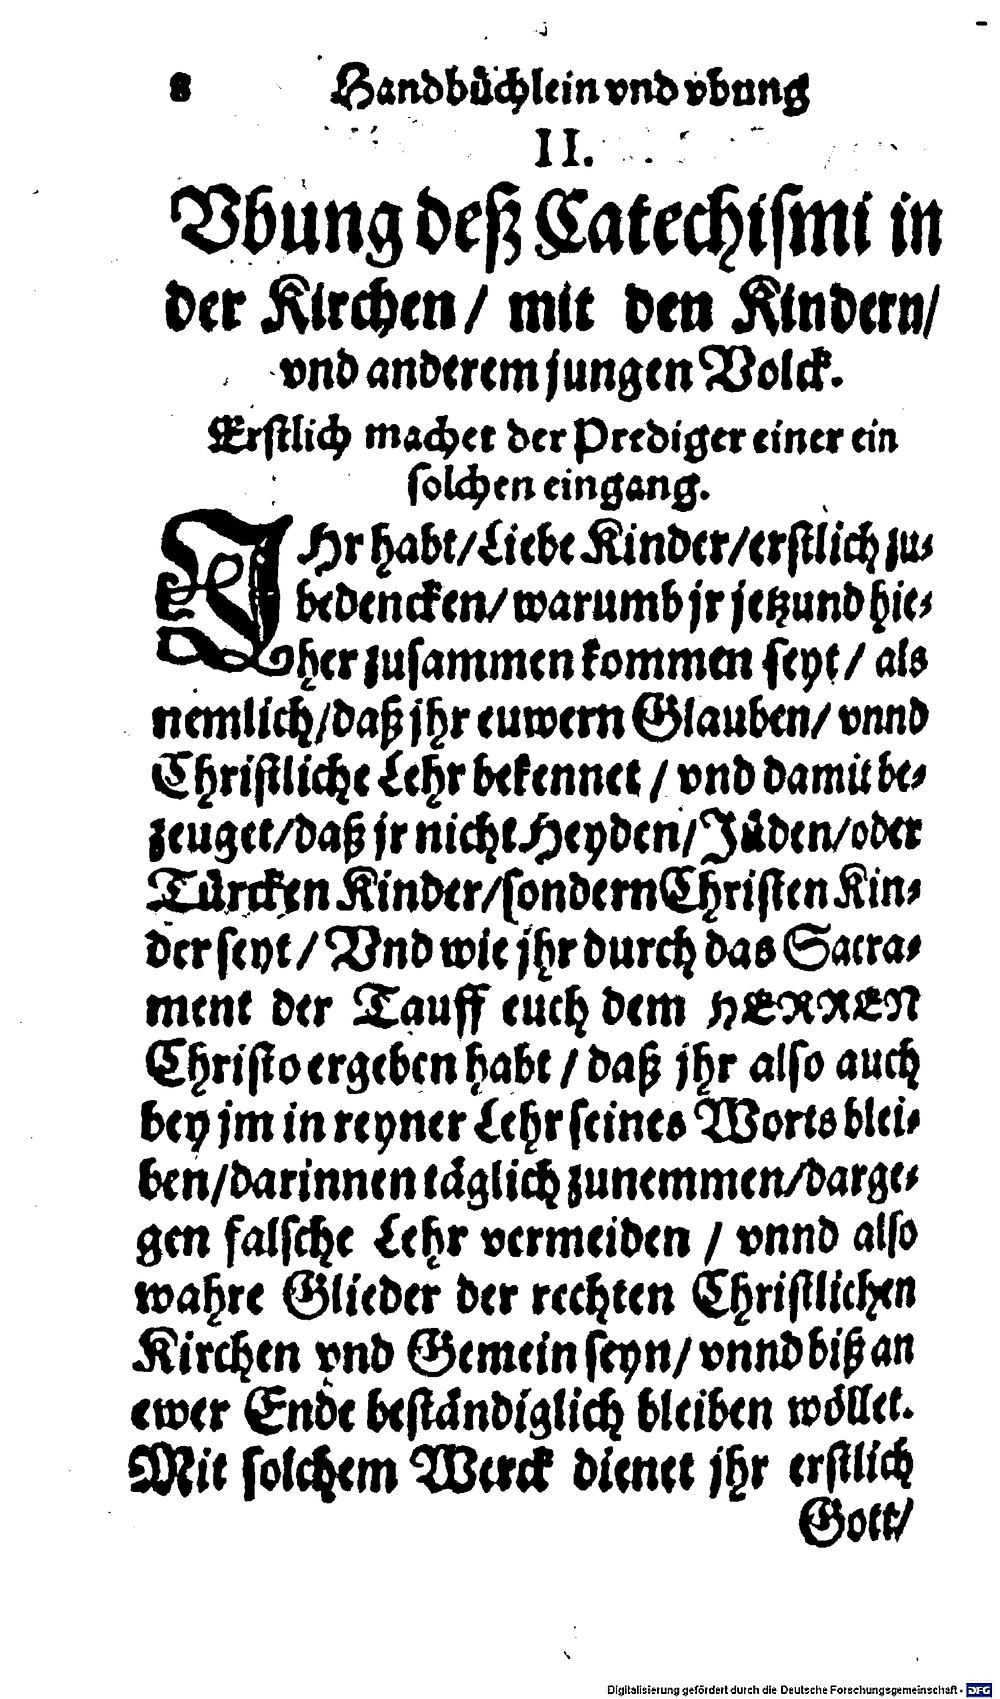 8 Handbüchlein vnd vbung
II.
Vbung deß Catechismi in
der Kirchen / mit den Kindern /
vnd anderem jungen Volck.
Erstlich machet der Prediger einer ein
solchen eingang.
IHr habt / Liebe Kinder / erstlich zu⸗
bedencken / warumb jr jetzund hie⸗
her zusammen kommen seyt / als
nemlich / daß jhr euwern Glauben / vnnd
Christliche Lehr bekennet / vnd damit be⸗
zeuget / daß jr nicht Heyden / Jüden / oder
Türcken Kinder / sondern Christen Kin⸗
der seyt / Vnd wie jhr durch das Sacra⸗
ment der Tauff euch dem HERREN
Christo ergeben habt / daß jhr also auch
bey jm in reyner Lehr seines Worts blei⸗
ben / darinnen täglich zunemmen / darge⸗
gen falsche Lehr vermeiden / vnnd also
wahre Glieder der rechten Christlichen
Kirchen vnd Gemein seyn / vnnd biß an
ewer Ende beständiglich bleiben wöllet.
Mit solchem Werck dienet jhr erstlich
Gott /
Digitalisierung gefördert durch die Deutsche Forschungsgemeinschaft - DFG